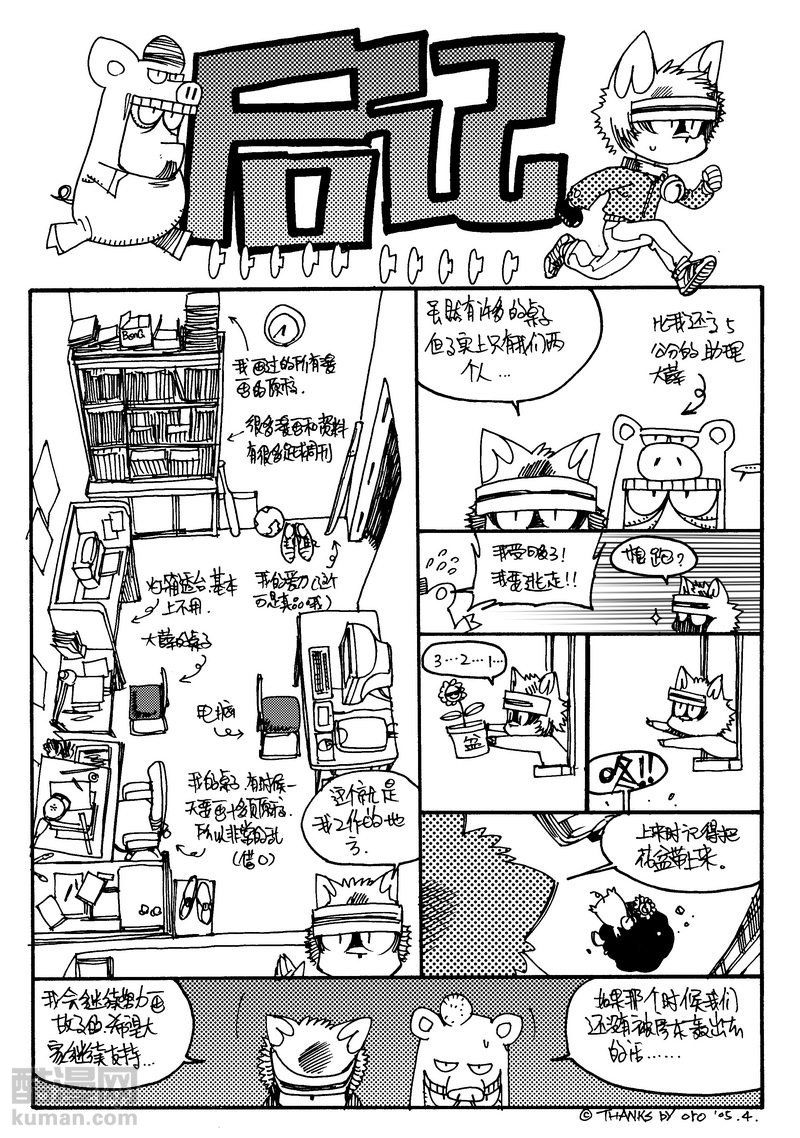 后记
BONG
我画过的所有漫
画的原稿.
很多漫画和资料
有很多足球周刊
灯箱透台.基本
上不用.
大薛的桌子
电脑
我的桌子.有时候一
天要画十多页原稿.
所以非常的乱
(借口)
这个就是
我工作的地
方.
虽然有许多的桌子
但事实上只有我们两
个人...
比我还高5
公分的助理
大薛
我受够了!
我要逃走!!
想跑?
3…2…1…
盆
上来时记得把
花盆带上来。
我会继续努力画
故事的.希望大
家继续支持...
如果那个时候我们
还没有被房东轰出去
的话……
© THANKS BY oro '05.4.
酷漫网
kuman.com